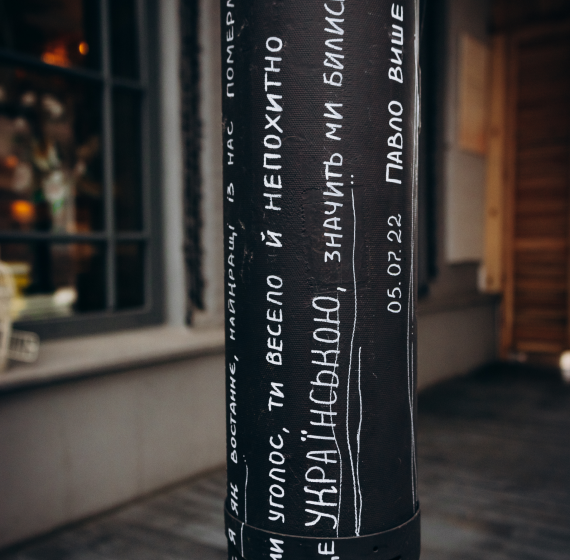 Я ЯК ВОСТАННЄ, НАЙКРАЩІ ІЗ НАС ПОМЕРЛ
УГОЛОС, ТИ ВЕСЕЛО Й НЕПОХИТНО
УКРАЇНСЬКОЮ, ЗНАЧИТЬ МИ БИЛИС
05.07.22 ПАВЛО ВИШЕ